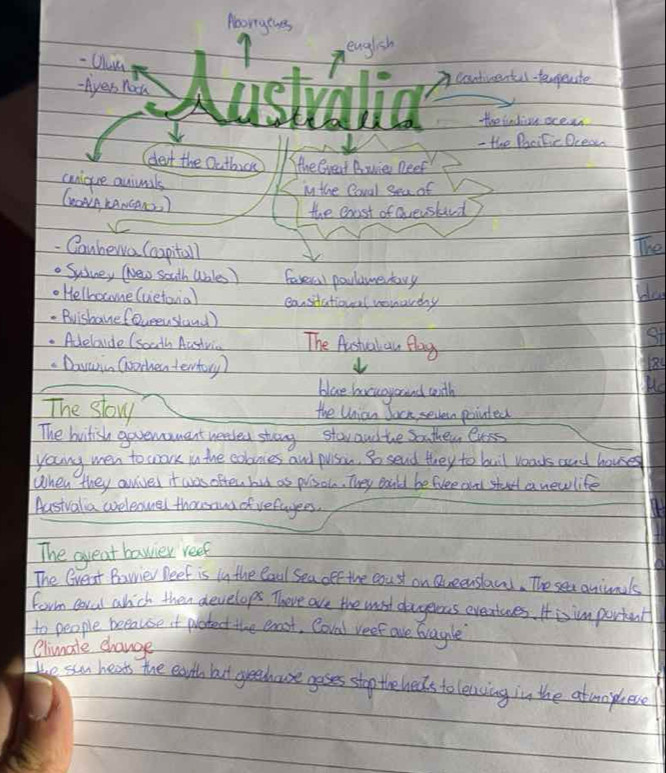 Aborygenes
english
- Uluru
- Ayers Rock
Australia
Continental - temperate
- the indian ocean
- the Pacific Ocean
desert the Outback
the Great Barrier Reef
in the Coral Sea of
the coast of Queensland
unique animals
(KOALA, KANGAROO)
- Canberra (capital)
• Sydney (New South Wales)
• Melbourne (Victoria)
• Brisbane (Queensland)
• Adelaide (South Austria
• Darwin (Northen territory)
federal parliamentary
constitutional monarchy
The Australian flag
blue background with
the Union Jack, seven pointed
star and the Southern Cross
The story
The british government needed strong
young men to work in the colonies and prison. So send they to buil roads and houses
When they arrived it was often bad as prison. They could be free and start a new life
Australia welcomed thousand of refugees.
The great barrier reef
The Great Barrier Reef is in the Coral Sea off the coast on Queensland. The sea animals
form coral which then develops. There are the most dangerous creatures. It is important
to people because it protect the coast. Coral reef are fragile
Climate change
the sun heats the earth but greenhouse gases stop the heats to leaving in the atmosphere